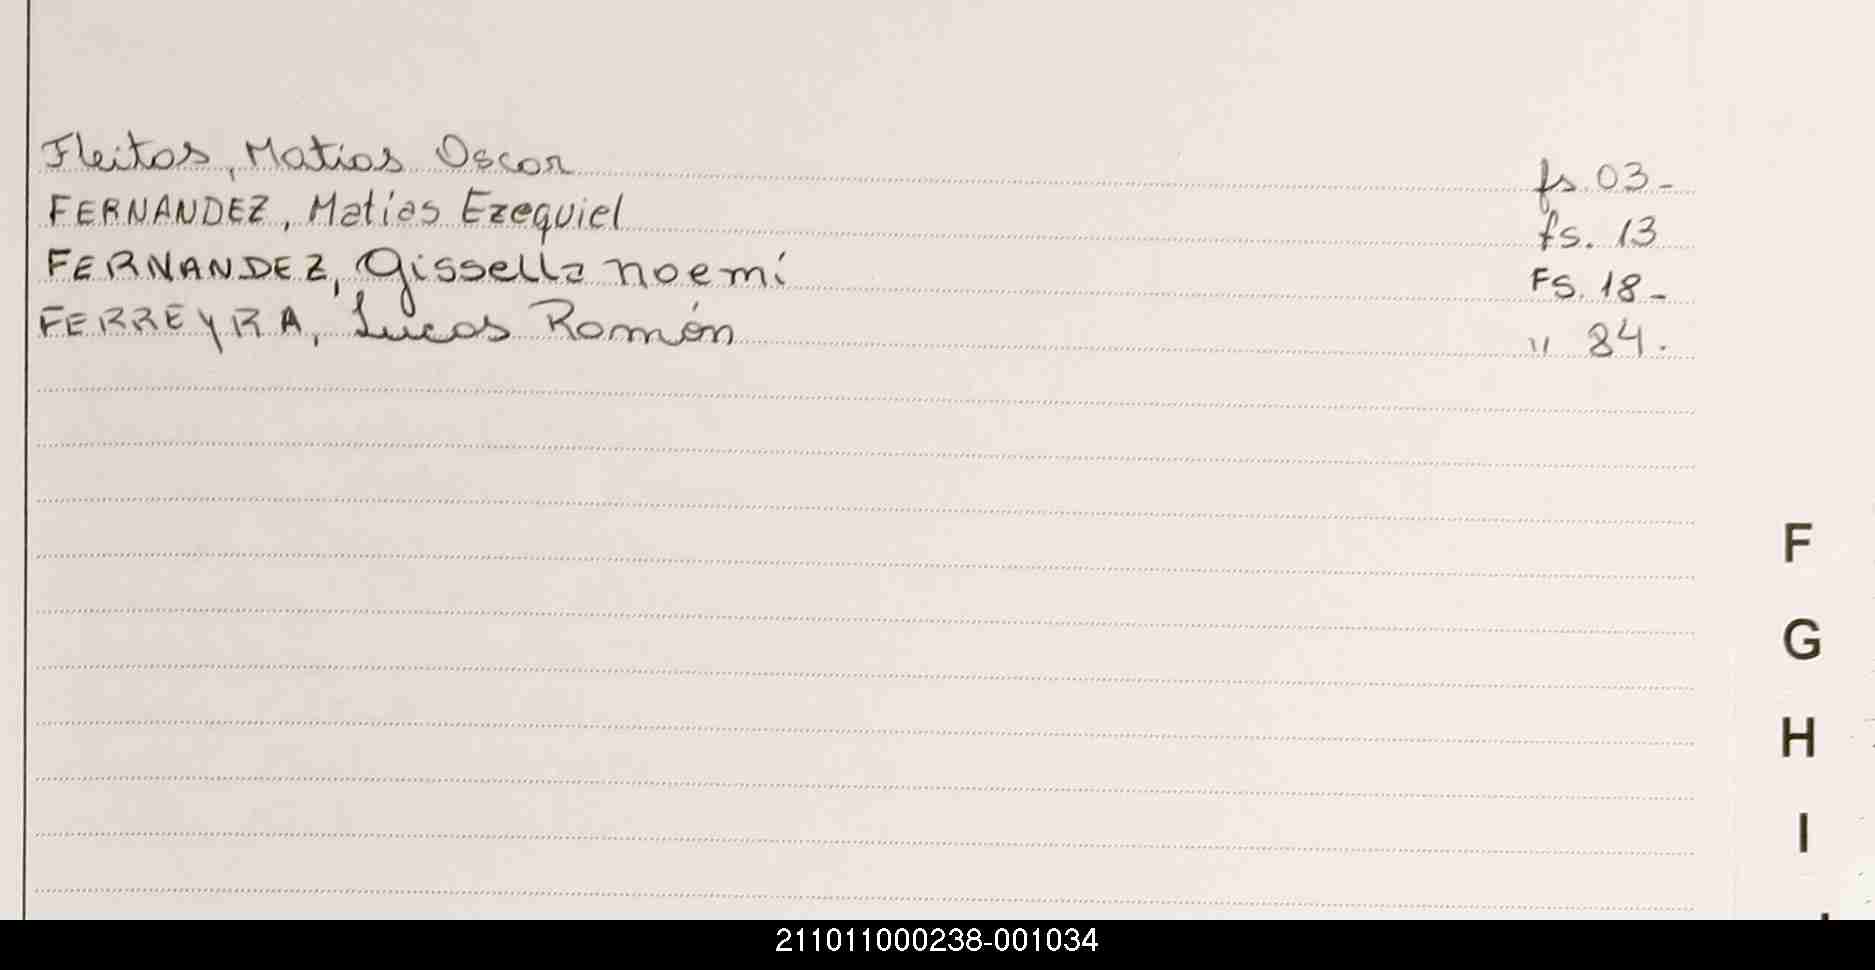 Fleitas, Matias Oscar fs. 03-
FERNANDEZ, Matias Ezequiel fs. 13
FERNANDEZ, Gissella noemi Fs. 18-
FERREYRA, Lucas Román " 84.
F
G
H
I
211011000238-001034